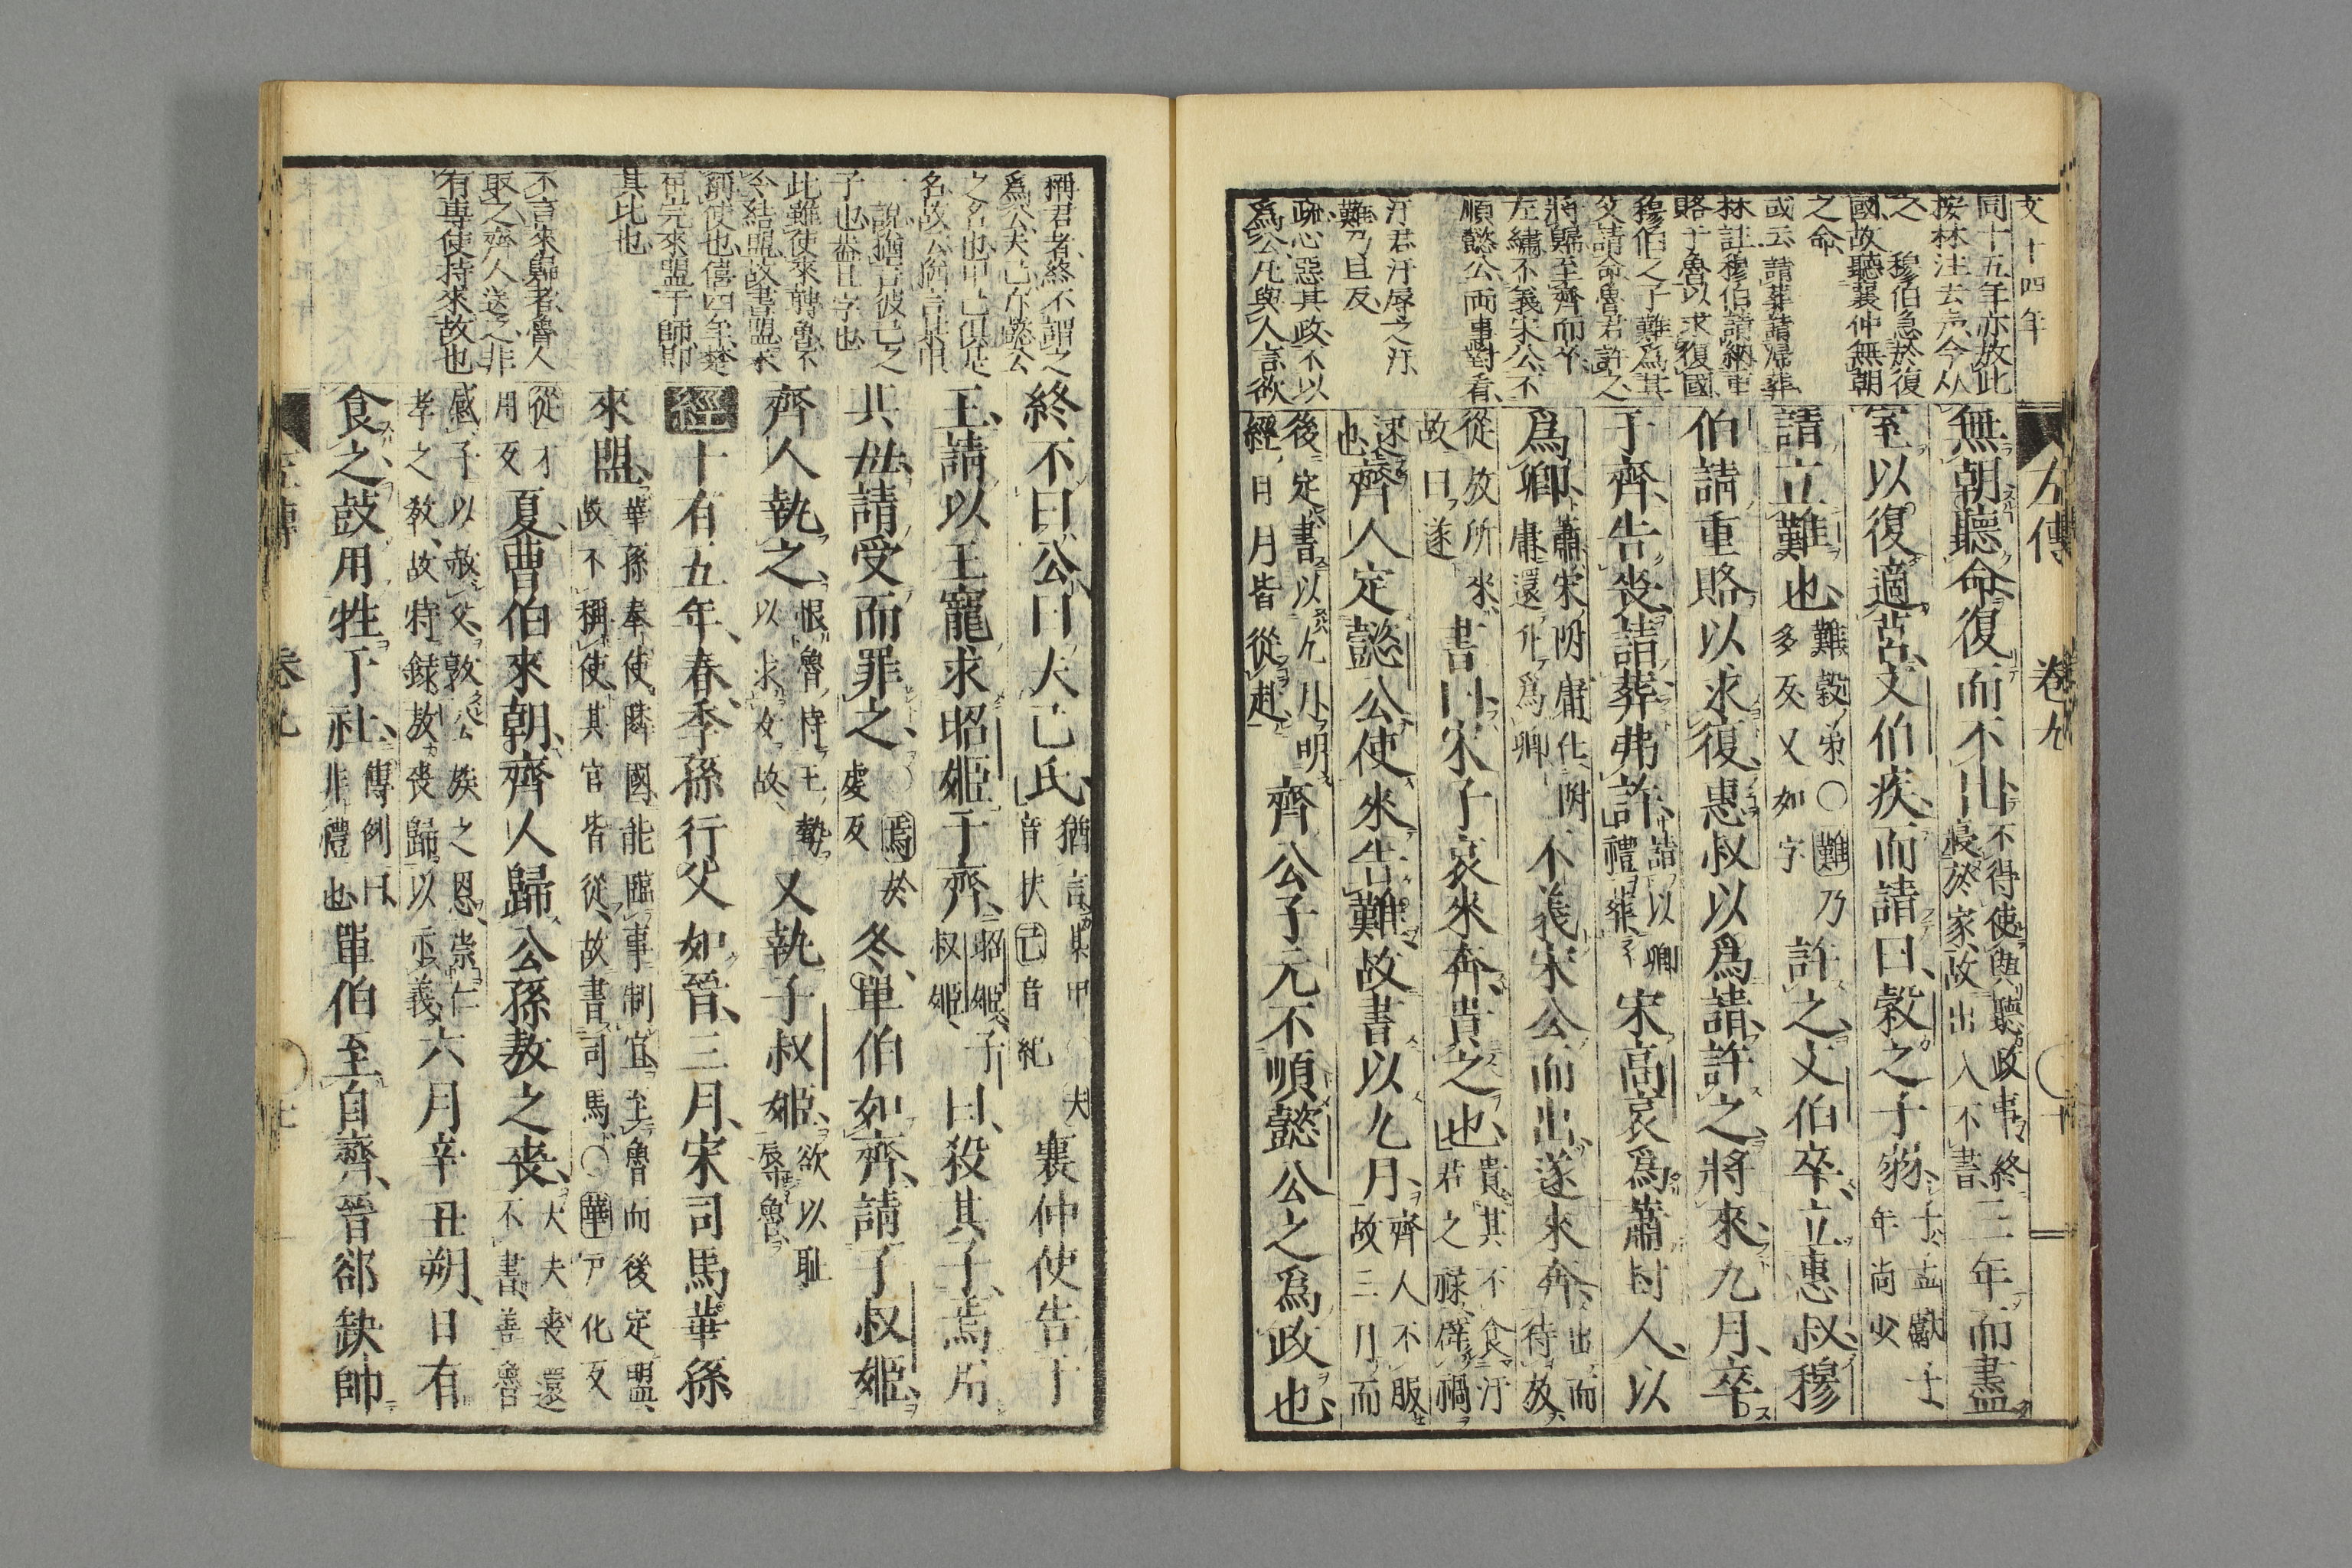 文十四年
同十五年亦放此
按林注去声今从
之 穆伯急於復
國故聽襄仲無朝
之命
或云請葬請帰葬
林註穆伯請納重
賂于魯以求復國
穆伯之子難爲其
父請命魯君許之
將歸至齊而卒
左繡不義宋公不
順懿公兩事對看
汙君汙辱之汙
難乃旦反
疏心惡其政不以
爲公凡與人言欲
左傳 卷九 十
無朝聽命復而不出不得使與聽政事終
寢於家故出入不書三年而盡
室以復適莒文伯疾而請曰穀之子弱子孟獻子
年尚少
請立難也難穀弟○難乃
多反又如字許之文伯卒立惠叔穆
伯請重賂以求復惠叔以爲請許之將來九月卒
于齊告喪請葬弗許請以卿
禮葬宋高哀爲蕭封人以
爲卿蕭宋附庸仕附
庸還升爲卿不義宋公而出遂來奔出而
待放
從放所來
故曰遂書曰宋子哀來奔貴之也貴其不食汙
君之祿辟禍
速
也齊人定懿公使來告難故書以九月齊人不服
故三月而
後定書以九月明
經日月皆從赴齊公子元不順懿公之爲政也
稱君者終不謂之
爲公夫己亦懿公
之名也甲己俱是
名故公猶言某甲
一説猶言彼己之
子也蓋且字也
此雖使來聘魯不
令結盟故書盟求
前使也僖四年楚
屈完來盟于師即
其比也
不言來歸者魯人
取之齊人送之非
有專使持來故也
終不曰公曰夫己氏猶言某甲 夫
音扶己音紀襄仲使告于
王請以王寵求昭姬于齊昭姬子
叔姬曰殺其子焉用
其母請受而罪之○焉於
虔反冬單伯如齊請子叔姬
齊人執之恨魯恃王勢
以求女故又執子叔姬欲以耻
辱魯
經十有五年春季孫行父如晉三月宋司馬華孫
來盟華孫奉使鄰國能臨事制宜至魯而後定盟
故不稱使其官皆從故書司馬○華戸化反
從才
用反夏曹伯來朝齊人歸公孫敖之喪大夫喪還
不書善魯
感子以赦父敦公族之恩崇仁
孝之教故特録敖喪歸以示義六月辛丑朔日有
食之鼓用牲于社傳例曰
非禮也單伯至自齊晉郤缺帥
左傳 卷九 十一